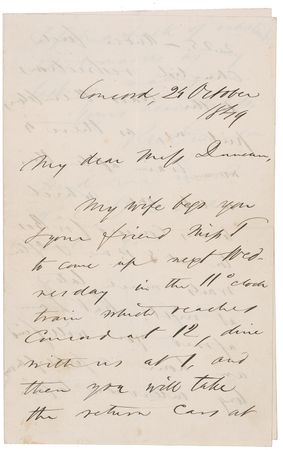 Concord, 24 October
1849
My dear Miss Duncan,
My wife begs you
& your friend Miss T
to come up next Wed-
nesday in the 11 o'clock
train which reaches
Concord at 12, dine
with us at 1, and
then you will take
the return cars at